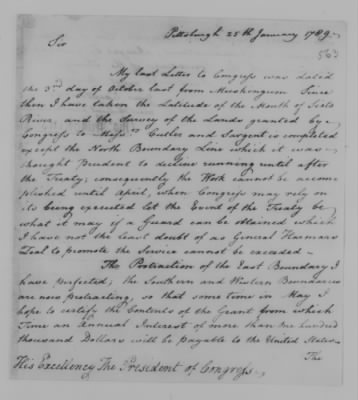 Pittsburgh 25th January 1789.
563
Sir
My last Letter to Congress was dated
the 3rd day of October last from Muskingum Since
then I have taken the Latitude of the Mouth of Sioto
River, and the Survey of the Lands granted by
Congress to Messrs Cutler and Sargent is completed
except the North Boundary Line which it was
thought Prudent to decline running until after
the Treaty; consequently the Work cannot be accom
plished until April, when Congress may rely on
its being executed let the Event of the Treaty be
what it may if a Guard can be obtained which
I have not the least doubt of as General Harmars
Zeal to promote the Service cannot be exceeded —
The Protraction of the East Boundary I
have perfected; the Southern and Western Boundaries
are now protracting, so that some time in May I
hope to certify the Contents of the Grant from which
Time an Annual Interest of more than One hundred
thousand Dollars will be payable to the United States —
The
His Excellency The President of Congress.